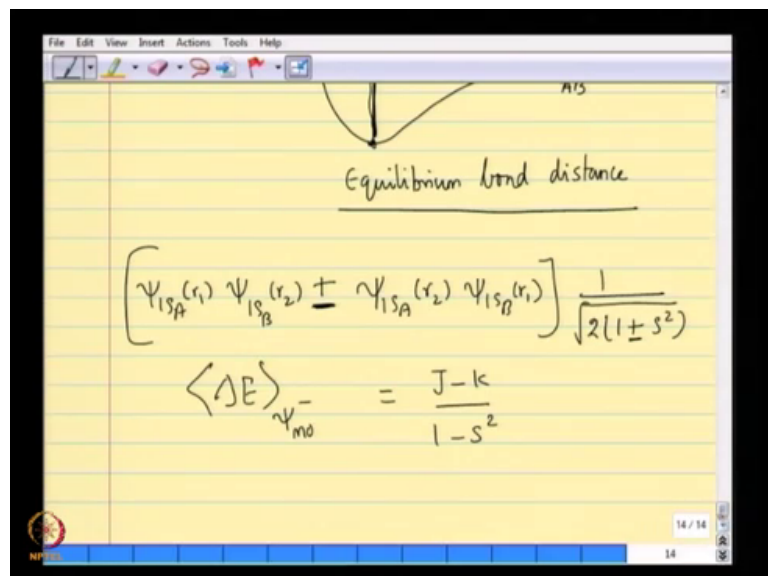 File Edit View Insert Actions Tools Help
Equilibrium bond distance
[ψ_{1S_A}(r_1) ψ_{1S_B}(r_2) ± ψ_{1S_A}(r_2) ψ_{1S_B}(r_1)] 1/√(2(1±S²))
⟨ΔE⟩_{ψ⁻_{mo}} = (J-K)/(1-S²)
14/14
14
NPTEL